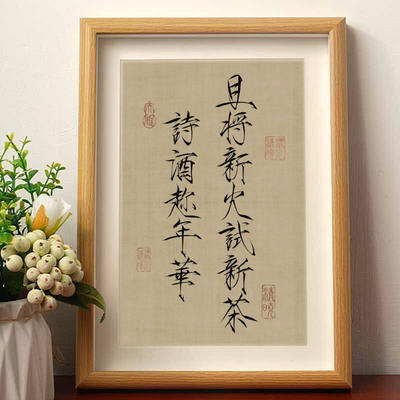 且将新火試新茶
詩酒趁年華